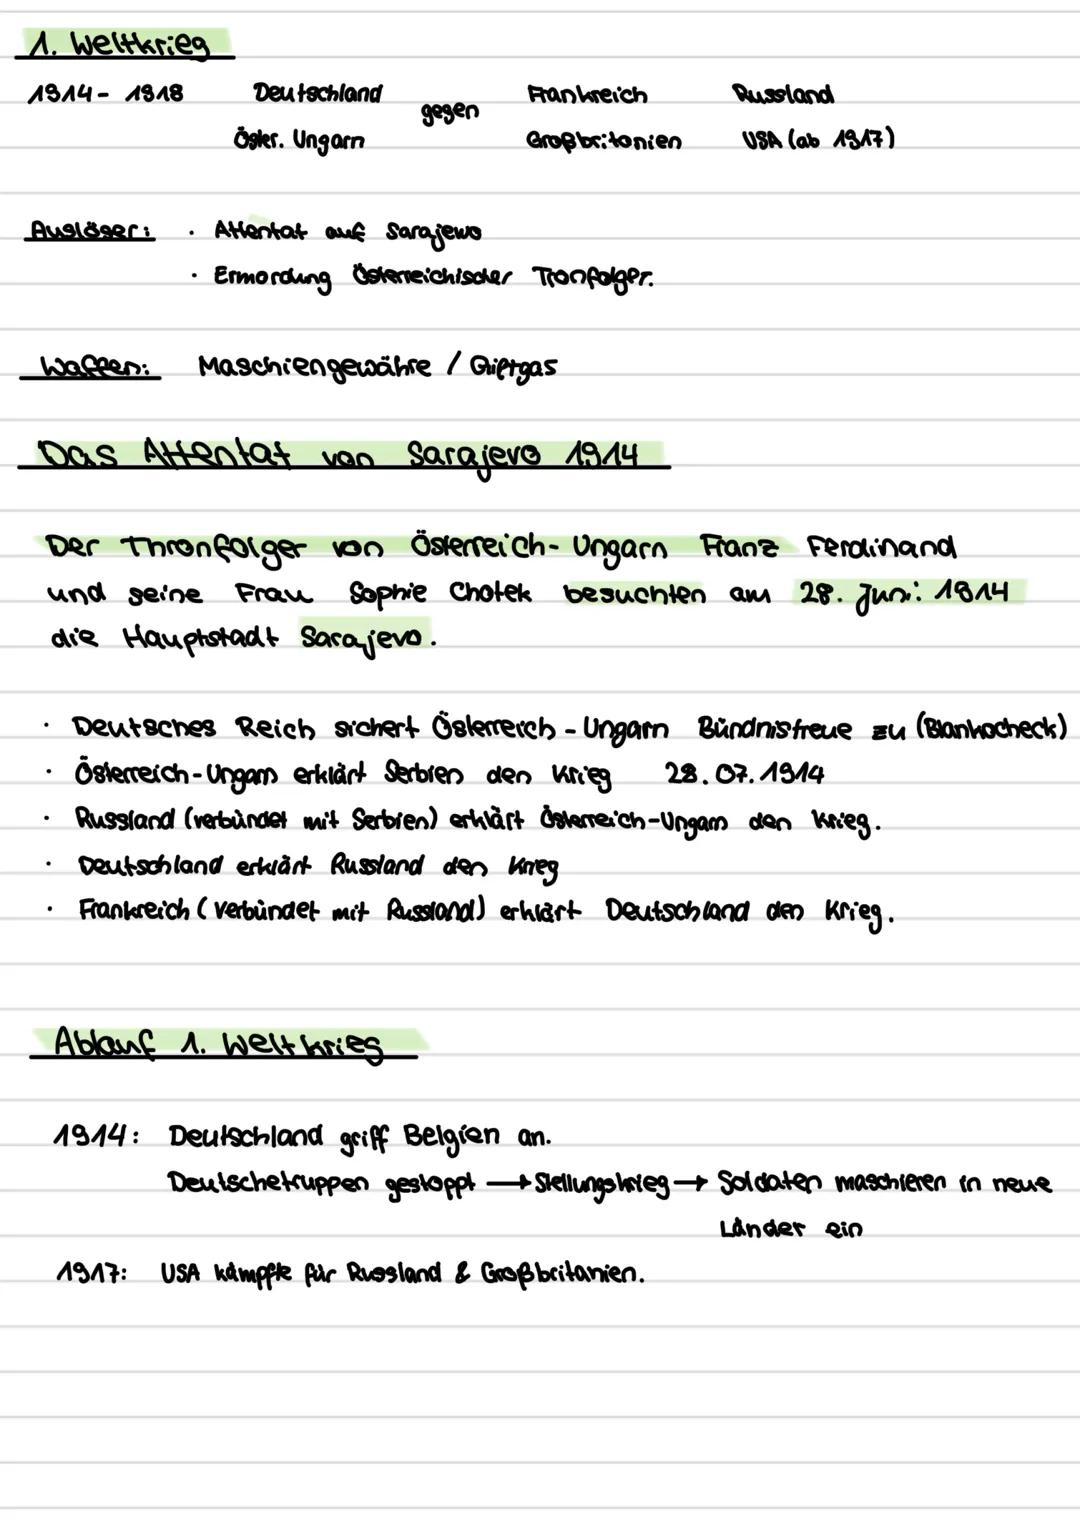 1. Weltkrieg
1914 - 1918 Deutschland gegen Frankreich Russland
Öster. Ungarn Großbritanien USA (ab 1917)
Auslöser: · Attentat auf Sarajewo
· Ermordung Österreichischer Tronfolger.
Waffen: Maschiengewähre / Giftgas
Das Attentat von Sarajevo 1914
Der Thronfolger von Österreich-Ungarn Franz Ferdinand
und seine Frau Sophie Chotek besuchten am 28. Juni 1914
die Hauptstadt Sarajevo.
· Deutsches Reich sichert Österreich-Ungarn Bündnistreue zu (Blankocheck)
· Österreich-Ungarn erklärt Serbien den Krieg 28.07.1914
· Russland (verbündet mit Serbien) erklärt Österreich-Ungarn den Krieg.
· Deutschland erklärt Russland den Krieg
· Frankreich (verbündet mit Russland) erklärt Deutschland den Krieg.
Ablauf 1. Weltkrieg
1914: Deutschland griff Belgien an.
Deutschetruppen gestoppt → Stellungskrieg → Soldaten maschieren in neue
Länder ein
1917: USA kämpfte für Russland & Großbritanien.